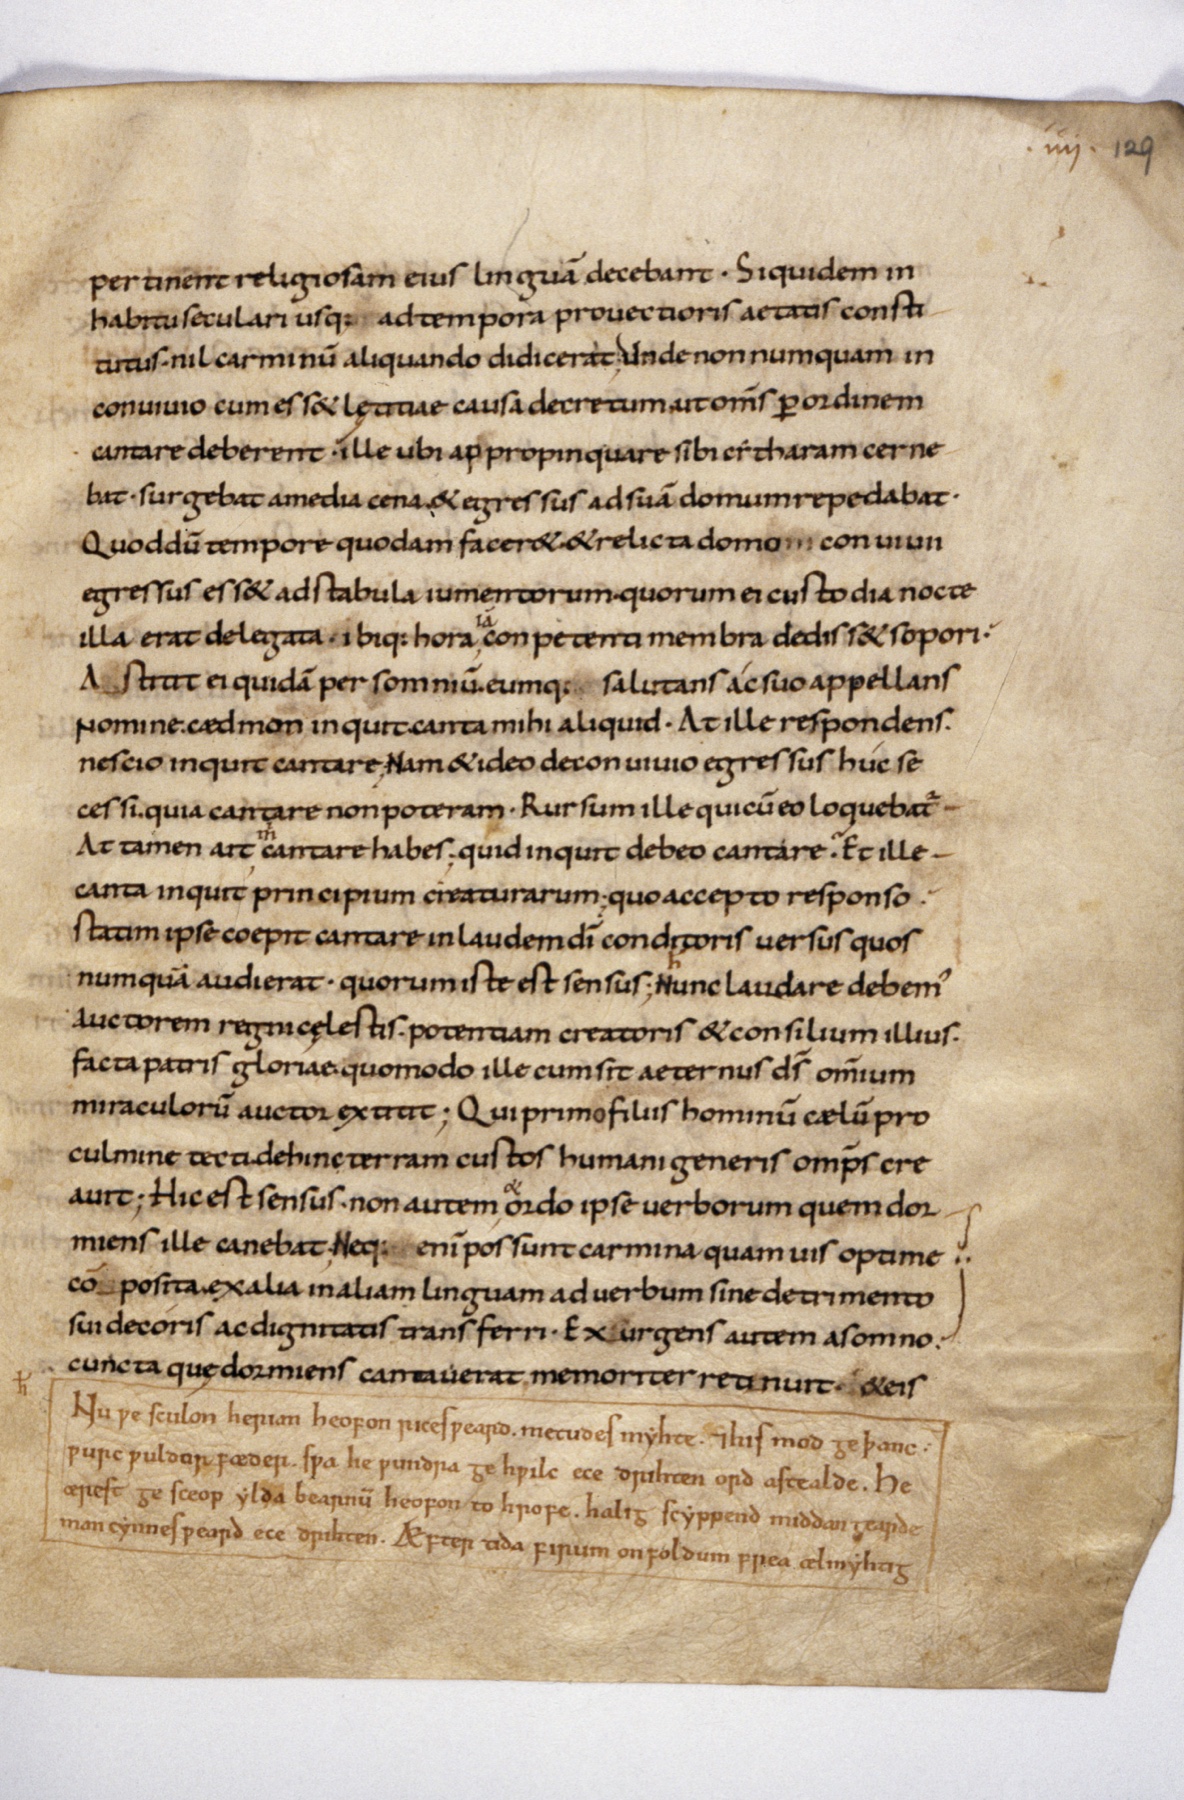 ·iiij· 129
pertinent religiosam eius linguā decebant · Siquidem in
habitu seculari usq; ad tempora prouectioris aetatis consti
tutus · nil carminū aliquando didicerat; Unde non numquam in
conuiuio cum ess& lętitiae causa decretum, ut om̄s ꝑ ordinem
cantare deberent · ille ubi appropinquare sibi citharam cerne
bat · surgebat a media cena, & egressus ad suā domum repedabat ·
Quod dū tempore quodam facer& · & relicta domo conuiuii
egressus ess& ad stabula iumentorum · quorum ei custodia nocte
illa erat delegata · ibiq; hora iā conpetenti membra dediss& sopori ·
Astitit ei quidā per somniū · eumq; salutans ac suo appellans
nomine · cædmon inquit · canta mihi aliquid · At ille respondens ·
nescio inquit cantare; Nam & ideo de conuiuio egressus huc se
cessi · quia cantare non poteram · Rursum ille qui cū eo loquebat̄
At tamen ait m̄ cantare habes; quid inquit debeo cantare · Et ille
canta inquit principium creaturarum; quo accepto responso ·
statim ipse coepit cantare in laudem dī conditoris uersus quos
numquā audierat · quorum iste est sensus; Nunc laudare debem'
Auctorem regni cęlestis · potentiam creatoris & consilium illius ·
facta patris gloriae · quomodo ille cum sit aeternus ds̄ omīum
miraculorū auctor extitit; Qui primo filiis hominū cælū pro
culmine tecti · dehinc terram custos humani generis omp̄s cre
auit; Hic est sensus · non autem ordo ipse uerborum quem dor
miens ille canebat; Neq; enī possunt carmina quam uis optime
cō posita · ex alia in aliam linguam ad uerbum sine detrimento
sui decoris ac dignitatis transferri · Exurgens autem a somno ·
cuncta quę dormiens cantauerat memoriter retinuit · & eis
Nu ƿe sculon herian heofon rices ƿeard . metudes myhte . ⁊ his mod geþanc .
ƿurc ƿuldor fæder . sƿa he ƿundra gehƿilc ece drihten ord astealde . He
ærest ge sceop ylda bearnū heofon to hrofe . halig scyppend middan gearde
man cynnes ƿeard ece drihten . Æfter tida firum on foldum frea ælmyhtig